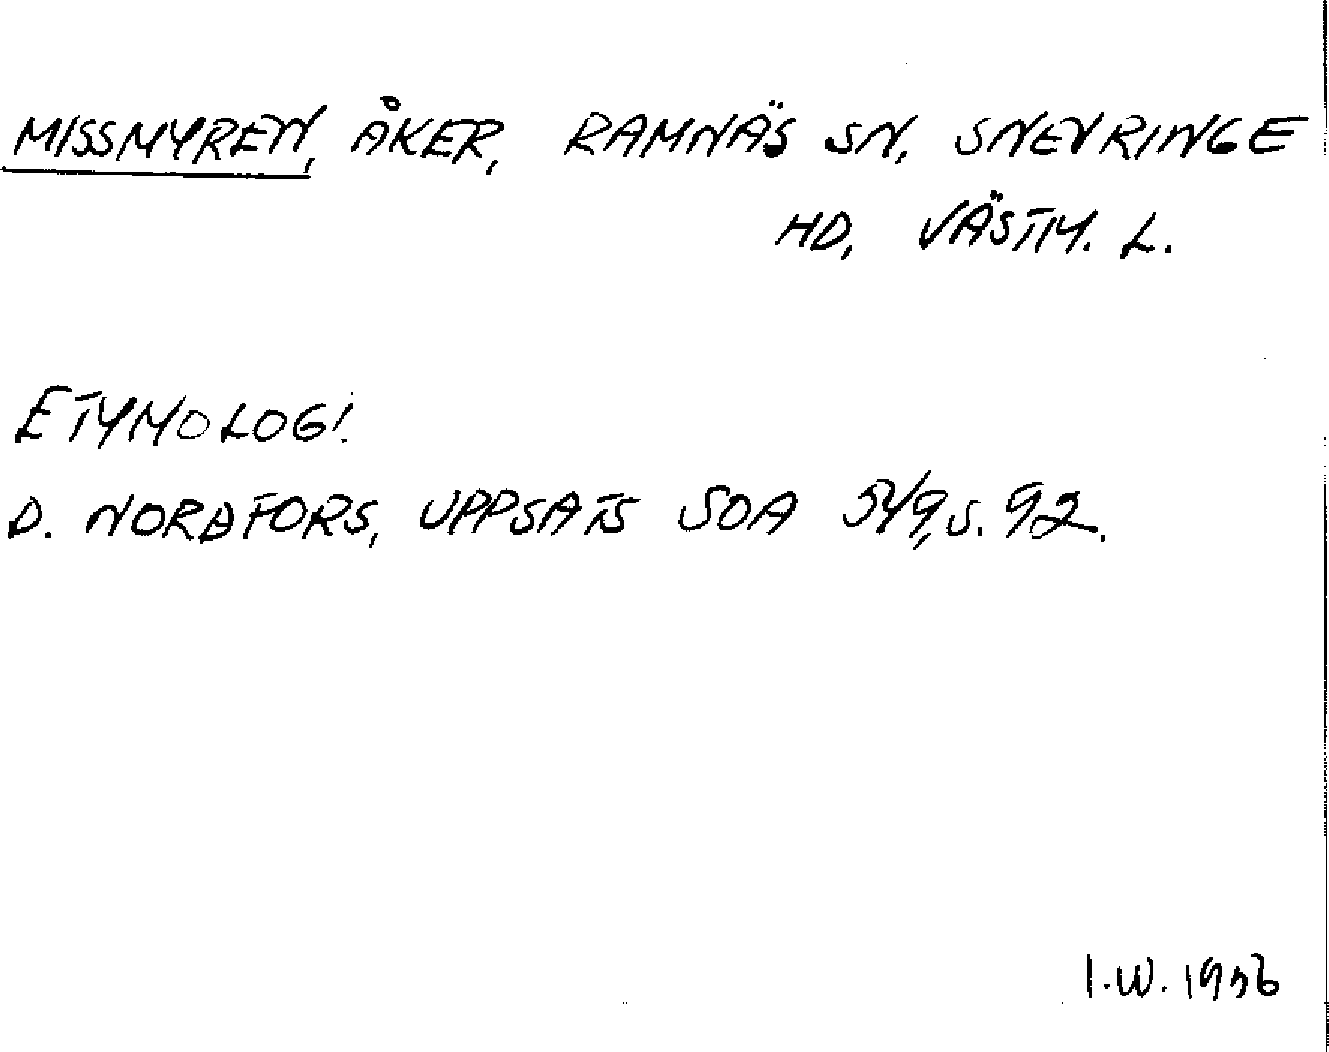 MISSMYREN, ÅKER, RAMNÄS SN, SNEVRINGE
HD, VÄSTM. L.
ETYMOLOGI.
D. NORDFORS, UPPSATS SOA 549, S. 92.
I.W. 1956